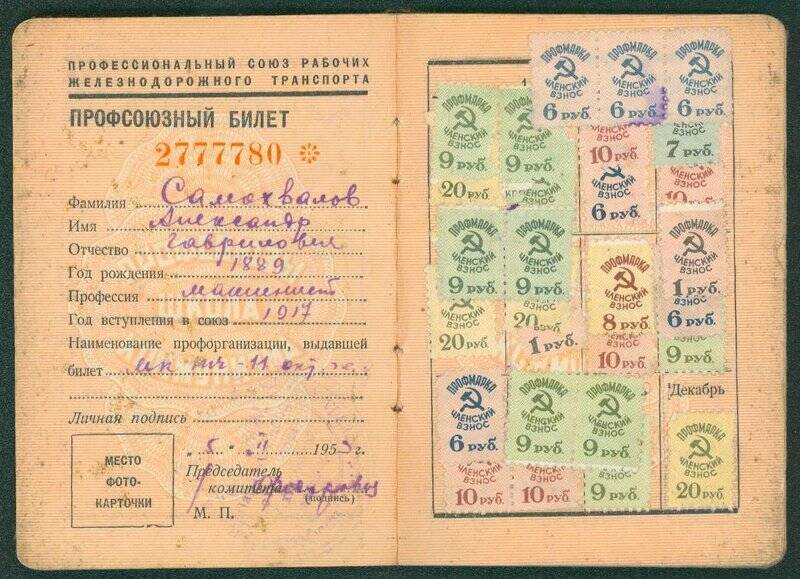 ПРОФЕССИОНАЛЬНЫЙ СОЮЗ РАБОЧИХ
ЖЕЛЕЗНОДОРОЖНОГО ТРАНСПОРТА
ПРОФСОЮЗНЫЙ БИЛЕТ
2777780
Фамилия Самохвалов
Имя Александр
Отчество Гаврилович
Год рождения 1889
Профессия машинист
Год вступления в союз 1917
Наименование профорганизации, выдавшей
билет
Личная подпись
МЕСТО
ФОТО-
КАРТОЧКИ
195 г.
Председатель
комитета
(подпись)
М. П.
ПРОФМАРКА ПРОФМАРКА ПРОФМАРКА
ЧЛЕНСКИЙ ЧЛЕНСКИЙ ЧЛЕНСКИЙ
ВЗНОС ВЗНОС ВЗНОС
6 руб. 6 руб. 6 руб.
ПРОФМАРКА ПРОФМАРКА
ЧЛЕНСКИЙ ЧЛЕНСКИЙ ЧЛЕНСКИЙ ЧЛЕНСКИЙ
ВЗНОС ВЗНОС ВЗНОС ВЗНОС
9 руб. 9 руб. 10 руб. 7 руб.
20 руб. ЧЛЕНСКИЙ
ВЗНОС
6 руб.
10 руб.
ПРОФМАРКА ПРОФМАРКА ПРОФМАРКА
ЧЛЕНСКИЙ ЧЛЕНСКИЙ ЧЛЕНСКИЙ
ВЗНОС ВЗНОС ВЗНОС
9 руб. 9 руб. 1 руб.
ПРОФМАРКА
ЧЛЕНСКИЙ
ВЗНОС
8 руб.
ЧЛЕНСКИЙ ВЗНОС
6 руб.
20 руб. 20 руб. 1 руб. 10 руб. 9 руб.
Декабрь
ПРОФМАРКА ПРОФМАРКА ПРОФМАРКА
ЧЛЕНСКИЙ ЧЛЕНСКИЙ ЧЛЕНСКИЙ
ВЗНОС ВЗНОС ВЗНОС
6 руб. 9 руб. 9 руб.
ПРОФМАРКА
ЧЛЕНСКИЙ
ВЗНОС
20 руб.
ЧЛЕНСКИЙ ЧЛЕНСКИЙ ЧЛЕНСКИЙ
ВЗНОС ВЗНОС ВЗНОС
10 руб. 10 руб. 9 руб.